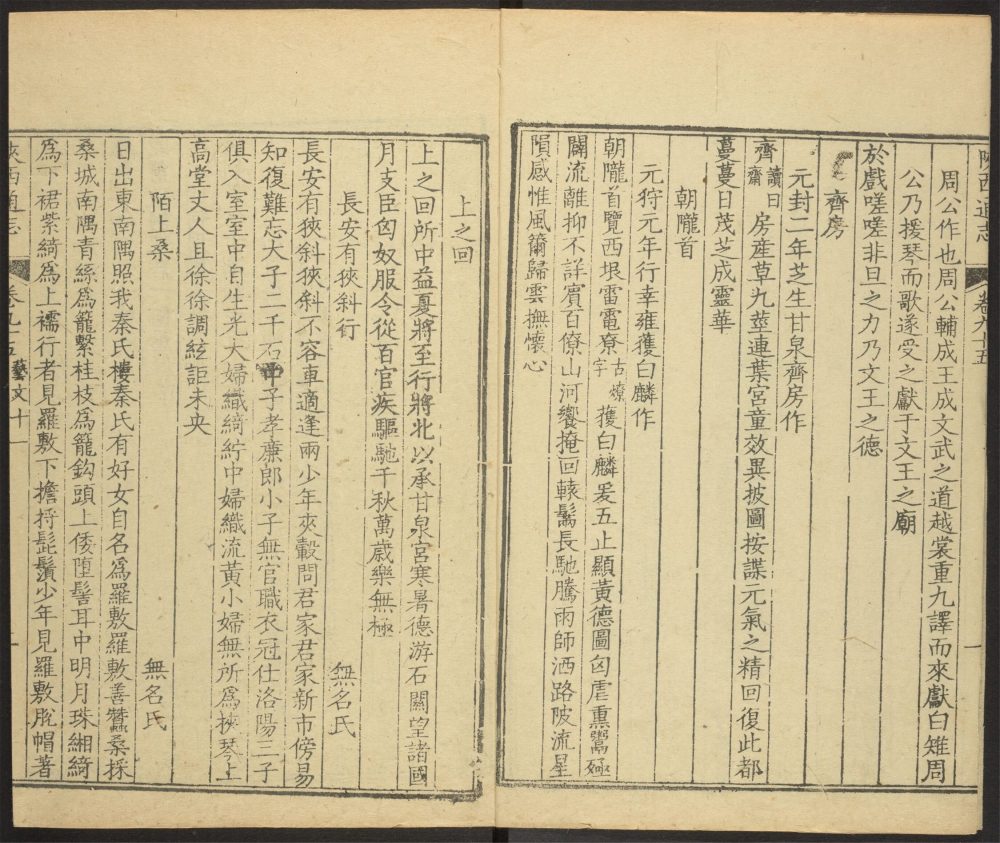 陝西通志
卷九十五
一
周公作也周公輔成王成文武之道越裳重九譯而來獻白雉周
公乃援琴而歌遂受之獻于文王之廟
於戲嗟嗟非旦之力乃文王之德
齊房
元封二年芝生甘泉齊房作
齊讀曰齋房産草九莖連葉宮童效異披圖按諜元氣之精回復此都
蔓蔓日茂芝成靈華
朝隴首
元狩元年行幸雍獲白麟作
朝隴首覽西垠雷電尞古燎字獲白麟爰五止顯黃德圖匈虐熏鬻殛
闢流離抑不詳賓百僚山河饗掩回轅鬗長馳騰雨師洒路陂流星
隕感惟風籋歸雲撫懷心
上之回
上之回所中益夏將至行將北以承甘泉宮寒暑德游石關望諸國
月支臣匈奴服令從百官疾驅馳千秋萬歲樂無極
長安有狹斜行 無名氏
長安有狹斜狹斜不容車適逢兩少年夾轂問君家君家新市傍易
知復難忘大子二千石中子孝廉郎小子無官職衣冠仕洛陽三子
俱入室室中自生光大婦織綺紵中婦織流黃小婦無所爲挾琴上
高堂丈人且徐徐調絃詎未央
陌上桑 無名氏
日出東南隅照我秦氏樓秦氏有好女自名爲羅敷羅敷善蠶桑採
桑城南隅青絲爲籠繫桂枝爲籠鈎頭上倭墮髻耳中明月珠緗綺
爲下裙紫綺爲上襦行者見羅敷下擔捋髭鬚少年見羅敷脫帽著
陝西通志
卷九十五 藝文十一
一